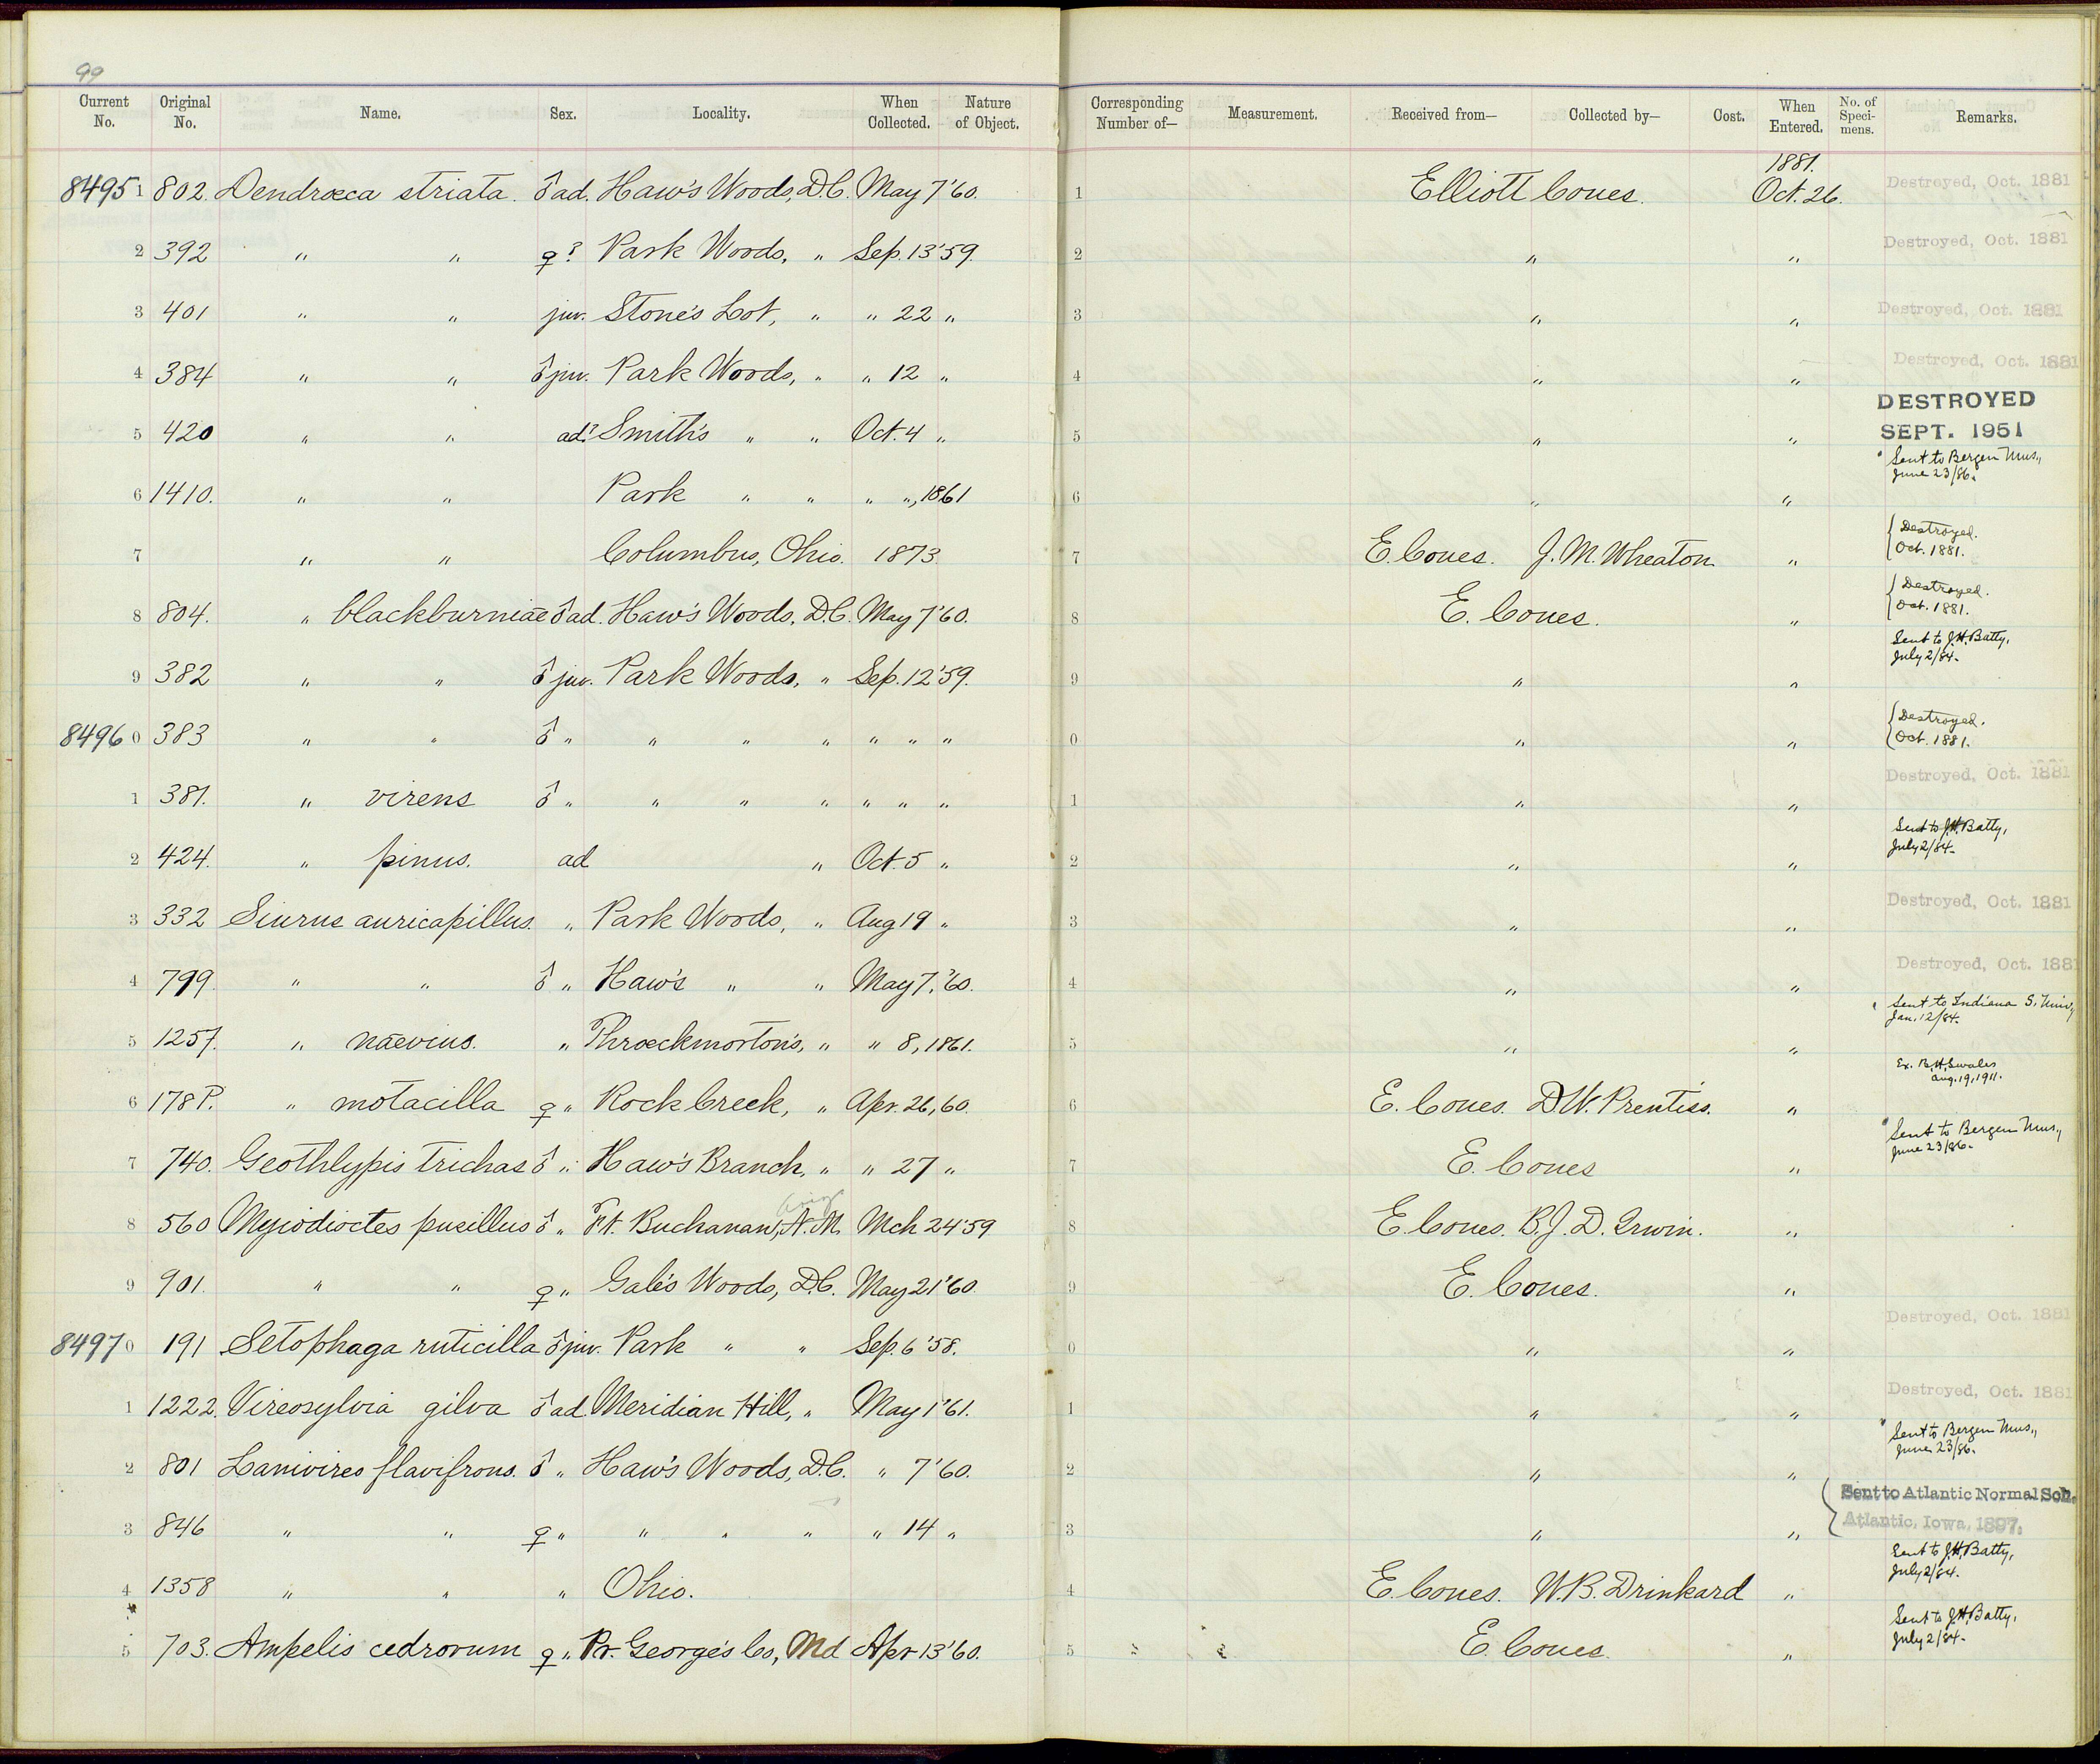 99
Current No. Original No. Name. Sex. Locality. When Collected. Nature of Object. Corresponding Number of— Measurement. Received from— Collected by— Cost. When Entered. No. of Specimens. Remarks.
1881.
84951 802. Dendrœca striata. ♂ ad. Haw's Woods, D.C. May 7'60. 1 Elliott Coues. Oct. 26. Destroyed, Oct. 1881
2 392 " " ♀? Park Woods, " Sep. 13'59. 2 " " Destroyed, Oct. 1881
3 401 " " juv. Stone's Lot, " " 22 " 3 " " Destroyed, Oct. 1881
4 384 " " ♂ juv. Park Woods, " " 12 " 4 " " Destroyed, Oct. 1881
5 420 " " ad? Smith's " " Oct. 4 " 5 " " DESTROYED SEPT. 1951
6 1410. " " Park " " " ", 1861 6 " " Sent to Bergen Mus., June 23/86.
7 " " Columbus, Ohio. 1873. 7 E. Coues. J. M. Wheaton. " { Destroyed. Oct. 1881.
8 804. " blackburniae ♂ ad. Haw's Woods, D.C. May 7'60. 8 E. Coues. " { Destroyed. Oct. 1881.
9 382 " " ♂ juv. Park Woods, " Sep. 12'59. 9 " " Sent to J.H. Batty, July 2/84.
84960 383 " " ♂ " " " " " " " 0 " " { Destroyed. Oct. 1881.
1 381. " virens ♂ " " " " " " " 1 " " Destroyed, Oct. 1881
2 424. " pinus. ad " Oct. 5 " 2 " " Sent to J.H. Batty, July 2/84.
3 332 Siurus auricapillus. " Park Woods, " Aug 19 " 3 " " Destroyed, Oct. 1881
4 799. " " ♂ " Haw's " " May 7, '60. 4 " " Destroyed, Oct. 1881
5 1257. " nævius. " Throeckmorton's, " " 8, 1861. 5 " " Sent to Indiana S. Univ, Jan. 12/84.
6 178 P. " motacilla ♀ " Rock Creek, " Apr. 26, 60. 6 E. Coues. D.W. Prentiss. " Ex. B.H. Swales Aug. 19, 1911.
7 740. Geothlypis trichas ♂ " Haw's Branch, " " 27 " 7 E. Coues " Sent to Bergen Mus., June 23/86.
8 560 Myiodioctes pusillus ♂ " Ft. Buchanan, N.M. Ariz Mch 24'59 8 E. Coues. B.J.D. Irwin. "
9 901. " " ♀ " Gale's Woods, D.C. May 21'60. 9 E. Coues. "
84970 191 Setophaga ruticilla ♂ juv. Park " " Sep. 6 '58. 0 " " Destroyed, Oct. 1881
1 1222. Vireosylvia gilva ♂ ad. Meridian Hill, " May 1'61. 1 " " Destroyed, Oct. 1881
2 801 Lanivireo flavifrons. ♂ " Haw's Woods, D.C. " 7'60. 2 " " Sent to Bergen Mus., June 23/86.
3 846 " " ♀ " " " " " 14 " 3 " " { Sent to Atlantic Normal Sch. Atlantic, Iowa, 1897.
4 1358 " " " Ohio. 4 E. Coues. W.B. Drinkard " Sent to J.H. Batty, July 2/84.
5 703. Ampelis cedrorum ♀ " Pr. George's Co, Md Apr 13'60. 5 E. Coues. " Sent to J.H. Batty, July 2/84.